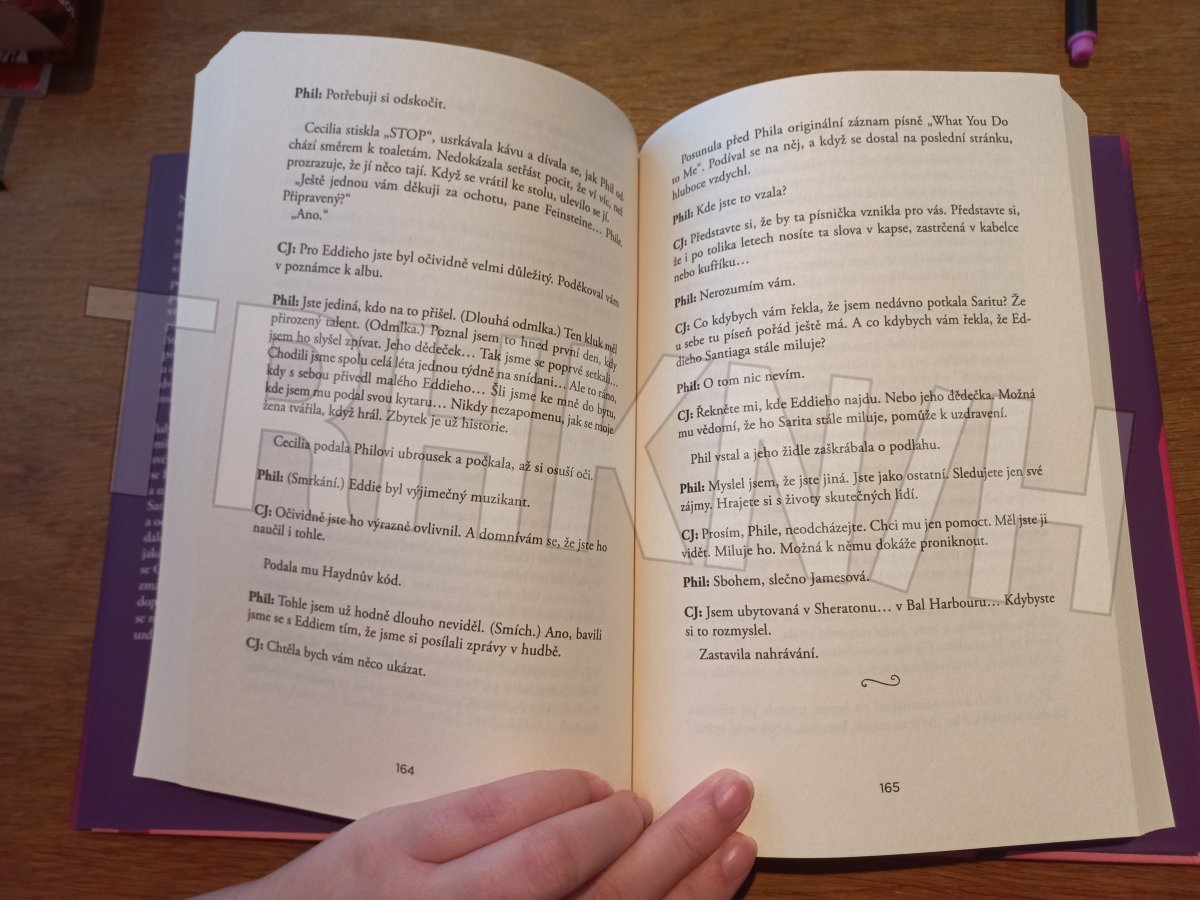 Phil: Potřebuji si odskočit.
Cecilia stiskla „STOP“, usrkávala kávu a dívala se, jak Phil od-
chází směrem k toaletám. Nedokázala setřást pocit, že ví víc, než
prozrazuje, že jí něco tají. Když se vrátil ke stolu, ulevilo se jí.
„Ještě jednou vám děkuji za ochotu, pane Feinsteine… Phile.
Připravený?“
„Ano.“
CJ: Pro Eddieho jste byl očividně velmi důležitý. Poděkoval vám
v poznámce k albu.
Phil: Jste jediná, kdo na to přišel. (Dlouhá odmlka.) Ten kluk měl
přirozený talent. (Odmlka.) Poznal jsem to hned první den, kdy
jsem ho slyšel zpívat. Jeho dědeček… Tak jsme se poprvé setkali…
Chodili jsme spolu celá léta jednou týdně na snídani… Ale to ráno,
kdy s sebou přivedl malého Eddieho… Šli jsme ke mně do bytu,
kde jsem mu podal svou kytaru… Nikdy nezapomenu, jak se moje
žena tvářila, když hrál. Zbytek je už historie.
Cecilia podala Philovi ubrousek a počkala, až si osuší oči.
Phil: (Smrkání.) Eddie byl výjimečný muzikant.
CJ: Očividně jste ho výrazně ovlivnil. A domnívám se, že jste ho
naučil i tohle.
Podala mu Haydnův kód.
Phil: Tohle jsem už hodně dlouho neviděl. (Smích.) Ano, bavili
jsme se s Eddiem tím, že jsme si posílali zprávy v hudbě.
CJ: Chtěla bych vám něco ukázat.
164
Posunula před Phila originální záznam písně „What You Do
to Me“. Podíval se na něj, a když se dostal na poslední stránku,
hluboce vzdychl.
Phil: Kde jste to vzala?
CJ: Představte si, že by ta písnička vznikla pro vás. Představte si,
že i po tolika letech nosíte ta slova v kapse, zastrčená v kabelce
nebo kufříku…
Phil: Nerozumím vám.
CJ: Co kdybych vám řekla, že jsem nedávno potkala Saritu? Že
u sebe tu píseň pořád ještě má. A co kdybych vám řekla, že Ed-
dieho Santiaga stále miluje?
Phil: O tom nic nevím.
CJ: Řekněte mi, kde Eddieho najdu. Nebo jeho dědečka. Možná
mu vědomí, že ho Sarita stále miluje, pomůže k uzdravení.
Phil vstal a jeho židle zaškrábala o podlahu.
Phil: Myslel jsem, že jste jiná. Jste jako ostatní. Sledujete jen své
zájmy. Hrajete si s životy skutečných lidí.
CJ: Prosím, Phile, neodcházejte. Chci mu jen pomoct. Měl jste ji
vidět. Miluje ho. Možná k němu dokáže proniknout.
Phil: Sbohem, slečno Jamesová.
CJ: Jsem ubytovaná v Sheratonu… v Bal Harbouru… Kdybyste
si to rozmyslel.
Zastavila nahrávání.
165
TRHKNIH